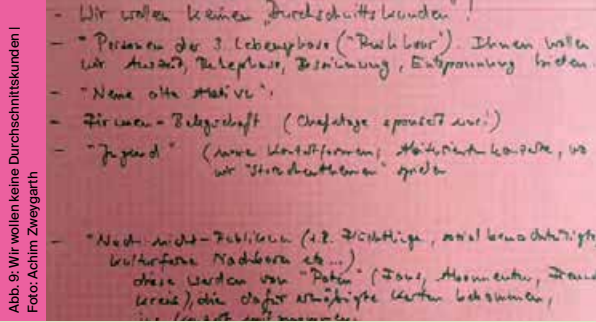 Abb. 9: Wir wollen keine Durchschnittskunden I
Foto: Achim Zweygarth
- Wir wollen keinen "Durchschnittskunden"!
- "Personen der 3. Lebensphase ("Rush hour"). Ihnen wollen
wir Auszeit, Ruhephase, Besinnung, Entspannung bieten.
- "Neue alte Aktive".
- Firmen-Belegschaft (Chefetage sponsert uns!)
- "Jugend" (neue Kontaktformen, wo
wir spielen
- "Noch-nicht-Publikum (z.B. Flüchtlinge, sozial benachteiligte
kulturferne Nachbarn etc...)
diese werden von "Paten" (Fans, Abonnenten,
kreis), die dafür ermäßigte Karten bekommen,
ins Konzert mitgenommen.